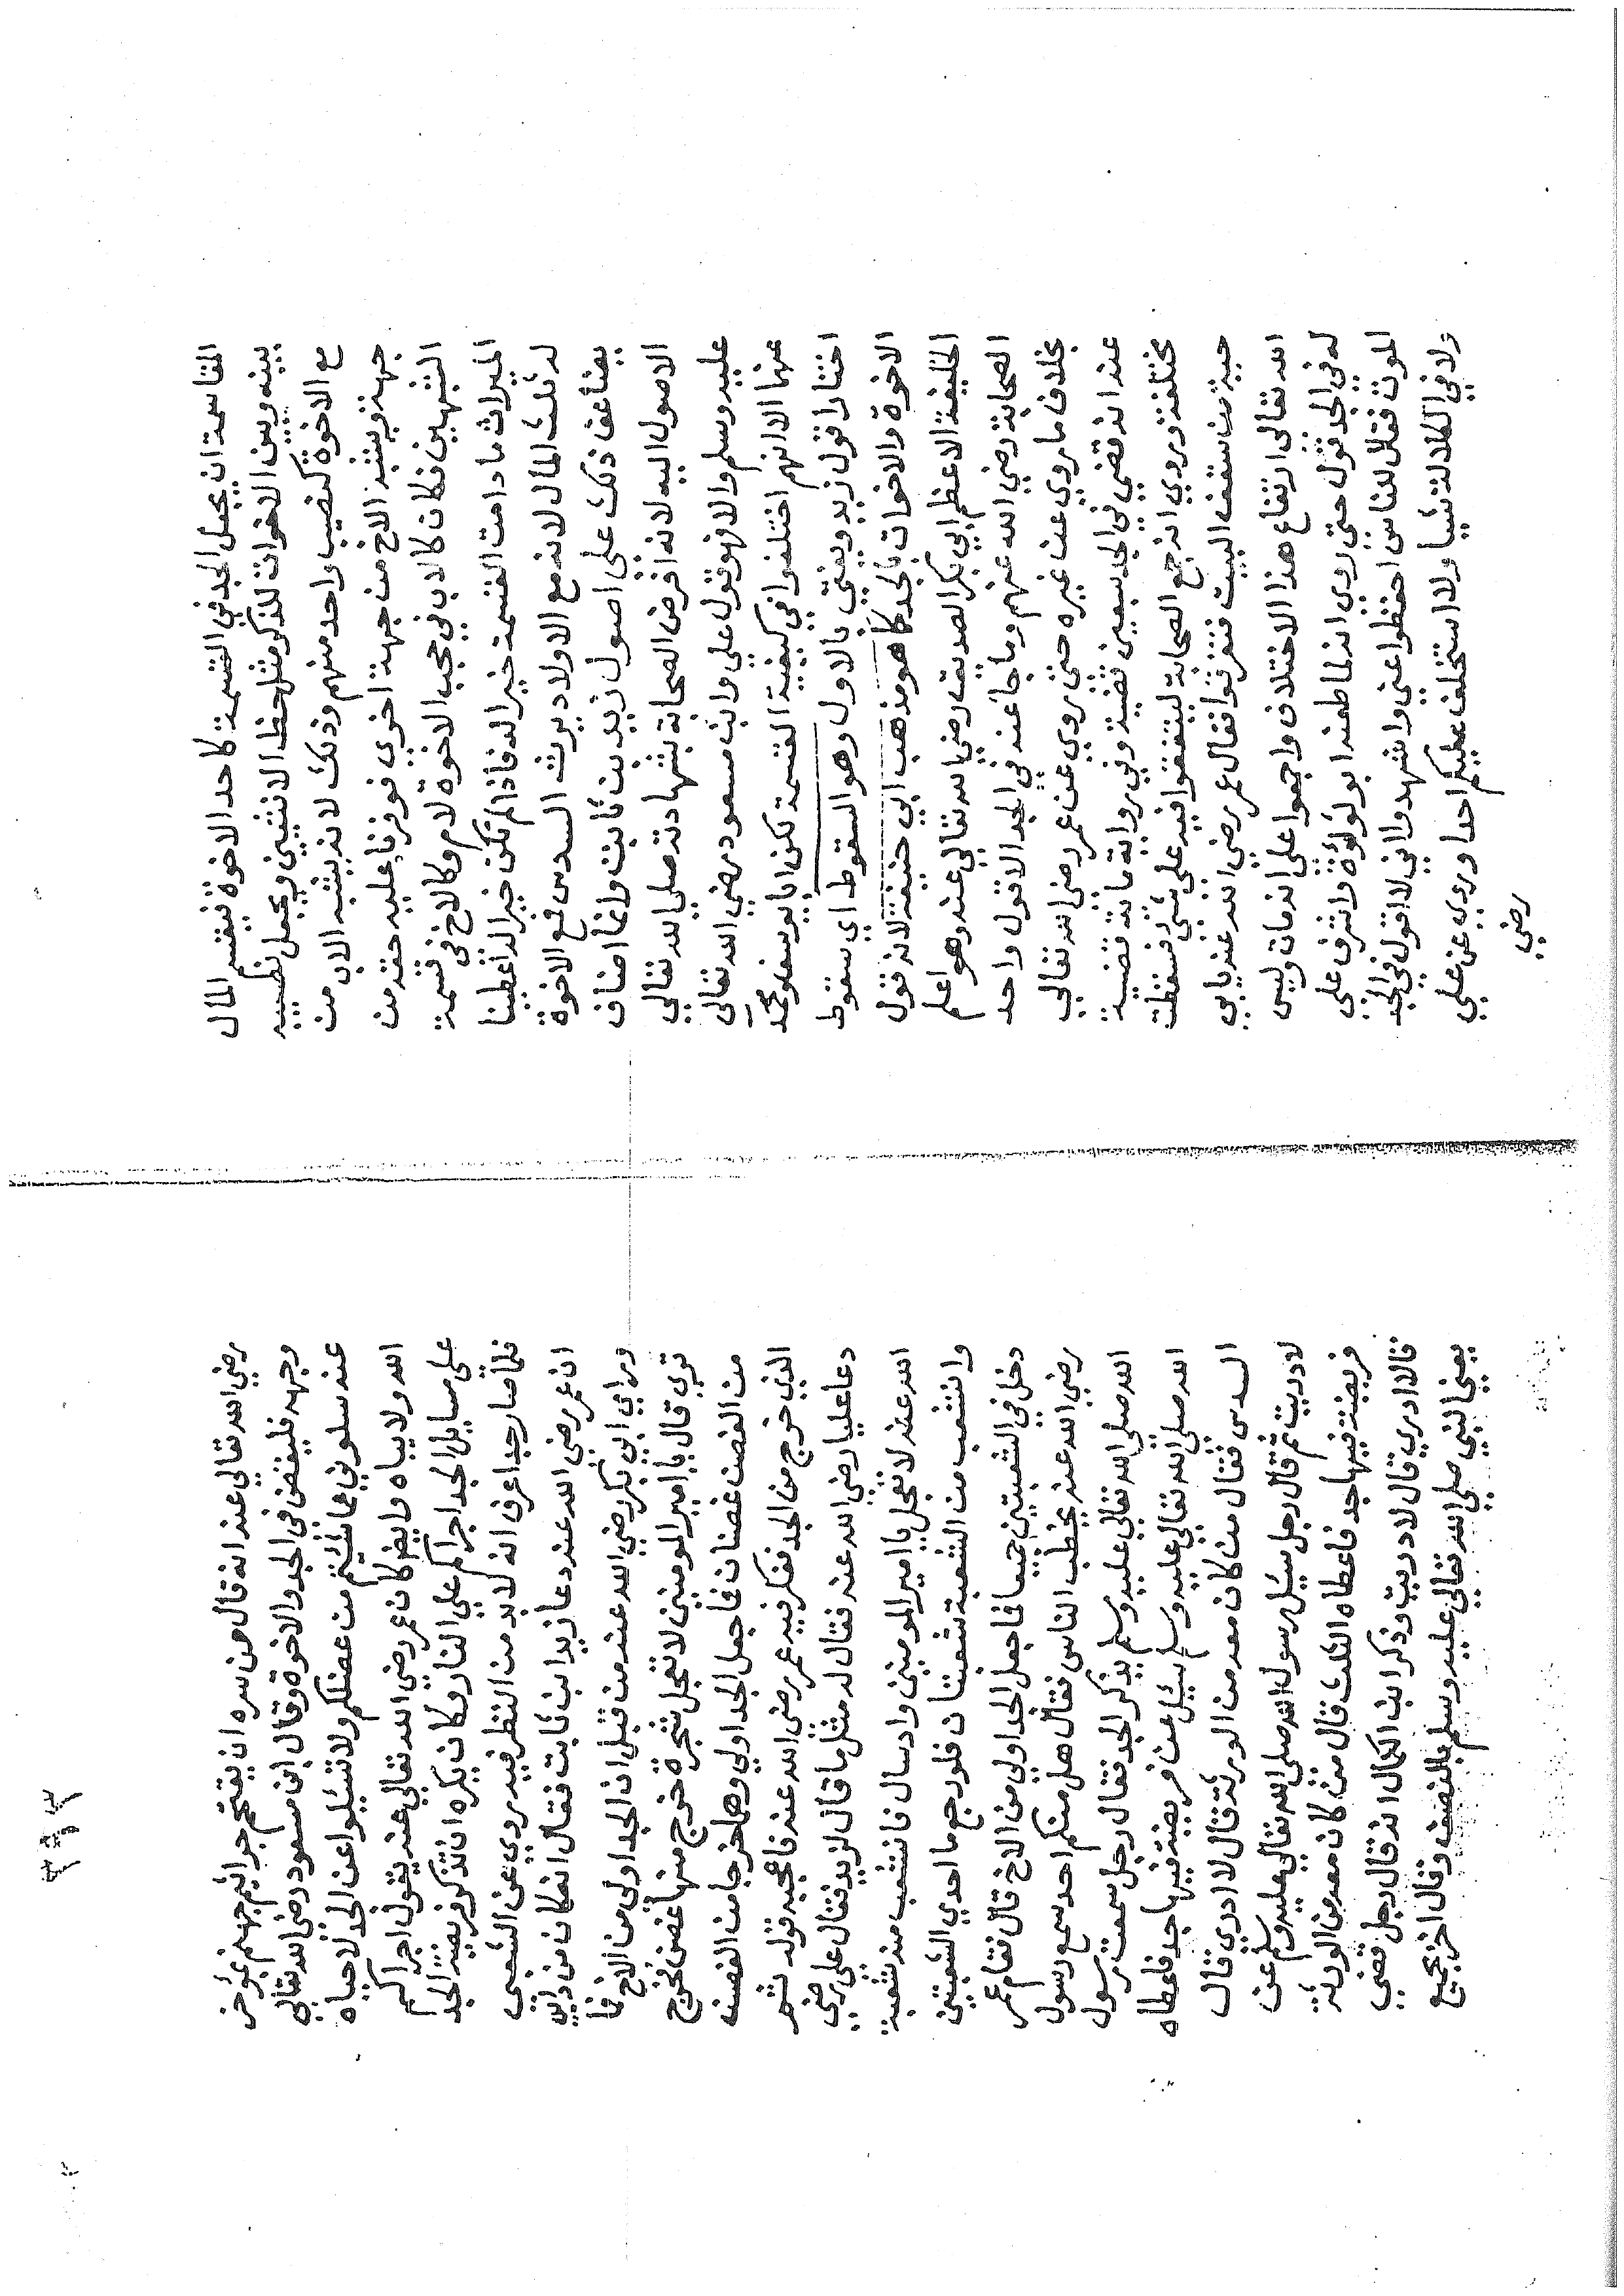 المقاسمة ان يجعل الجد في القسمة كاحد الاخوة فيقسم المال
بينه وبين الاخوات للذكر مثل حظ الانثيين ويجعل نصيبه
مع الاخوة كنصيب واحد منهم وذلك لانه يشبه الاب من
جهة ويشبه الاخ من جهة اخري فوفرنا عليه حقه من
الشبهين فكان كالاب في حجب الاخوة لام وكالاخ في قسمة
الميراث ما دامت القسمة خيرا له فاذا لم تكن خيرا له اعطينا
له ثلث المال لانه مع الاولاد يرث السدس فمع الاخوة
يضاعف ذلك علي اصول زيد بن ثابت وانما اضاف
الاصول اليه لانه افرض الصحابة بشهادته صلي الله تعالي
عليه وسلم والا فهو قول علي وابن مسعود رضي الله تعالي
عنهما الا انهم اختلفوا في كيفية القسمة لكن ابا يوسف ومحمد
اختارا قول زيد ويفتي بالاول وهو السقوط اي سقوط
الاخوة والاخوات بالجد كما هو مذهب ابي حنيفة لانه قول
الخليفة الاعظم ابي بكر الصديق رضي الله تعالي عنه وهو اعلم
الصحابة رضي الله عنهم وما جا عنه في الجد الا قول واحد
بخلاف ما روي عن غيره حتي روي عن عمر رضي الله تعالي
عنه انه قضي في الجد بسبعين قضية وفي رواية مائة قضية
مختلفة وروي انه جمع الصحابة ليتفقوا فيه علي شئ فسقطت
حية من سقف البيت فتفرقوا فقال عمر رضي الله عنه يابي
الله تعالي ارتفاع هذا الاختلاف واجمعوا علي انه مات وليس
له في الجد قول حتي روي انه لما طعنه ابو لؤلؤة واشرف علي
الموت فقال للناس احفظوا عني واشهدوا اني لا اقول في الجد
ولا في الكلالة شيا ولا استخلف عليكم احدا وروي عن علي
رضي
رضي الله تعالي عنه انه قال من سره ان يقتحم جراثيم جهنم بموخر
وجهه فليقض في الجد والاخوة وقال ابن مسعود رضي الله تعالي
عنه سلوني عما شئتم من عضلكم ولا تسئلوا عن الجد لا حياه
الله ولا بياه وايضا كان عمر رضي الله تعالي عنه يقول اجراكم
علي مسايل الجد اجراكم علي النار وكان يكره ان تذكر فريضة الجد
فلما صار جدا عرف انه لابد من النظر فيه روي عن الشعبي
ان عمر رضي الله عنه دعا زيدا ابن ثابت فقال انه كان من رايي
وراي ابي بكر رضي الله عنه من قبل ان الجد اولي من الاخ فما
تري قال يا امير المومنين لا تعجل شجرة خرج منها غصن فخرج
من الغصن غصنان فما جعل الجد اولي وهما خرجا من الغصن
الذي خرج من الجد ففكر فيه عمر رضي الله عنه فاعجبه قوله ثم
دعا عليا رضي الله عنه فقال له مثل ما قال لزيد فقال علي رضي
الله عنه لا تعجل يا امير المومنين واد سال فانشعب منه شعبة
وانشعب من الشعبة شعبتان فلو رجع ما احدي الشعبتين
دخل في الشعبتين جميعا فما جعل الجد اولي من الاخ قال فقام عمر
رضي الله عنه يخطب الناس فقال هل منكم احد سمع رسول
الله صلي الله تعالي عليه وسلم يذكر الجد فقال رجل سمعت رسول
الله صلي الله تعالي عليه وسلم سئل عن فريضة فيها جد فاعطاه
السدس فقال من كان معه من الورثة قال لا ادري قال
لا دريت ثم قال رجل سئل رسول الله صلي الله تعالي عليه وسلم عن
فريضة فيها جد فاعطاه الثلث قال من كان معه من الورثة
قال لا ادري قال لا دريت وذكر ابن الكمال انه قال رجل قضي
يعني النبي صلي الله تعالي عليه وسلم بالنصف وقال اخر بجميع